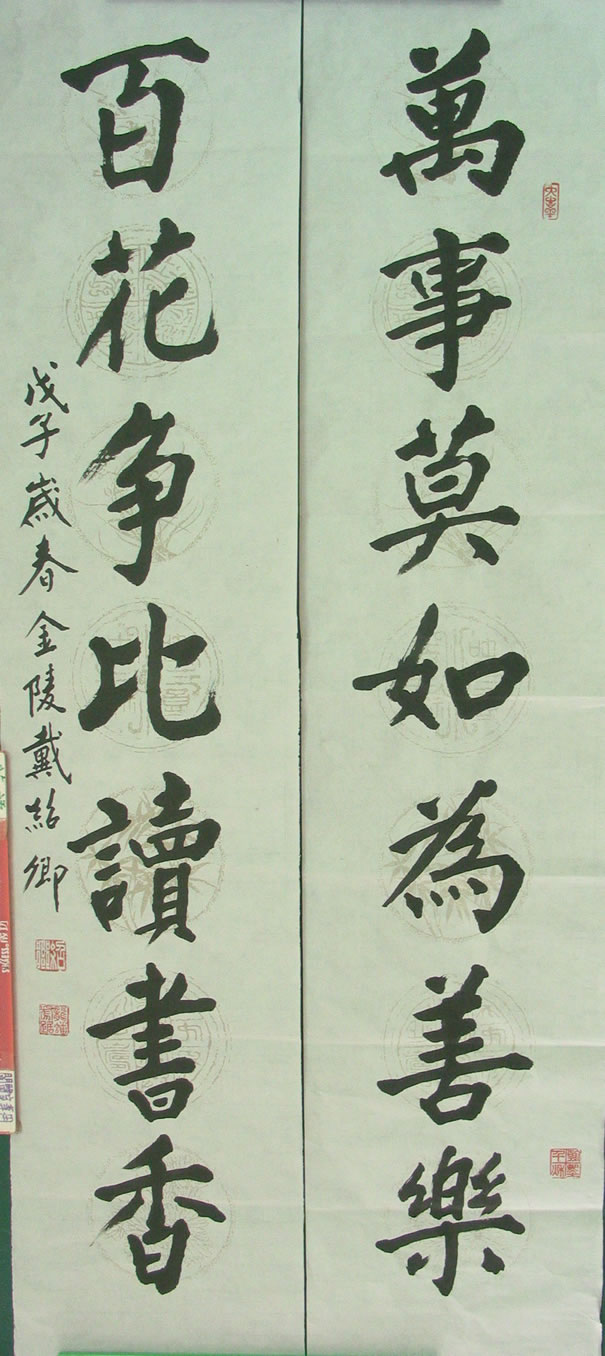 萬事莫如為善樂
百花争比讀書香
戊子歲春金陵戴紹卿